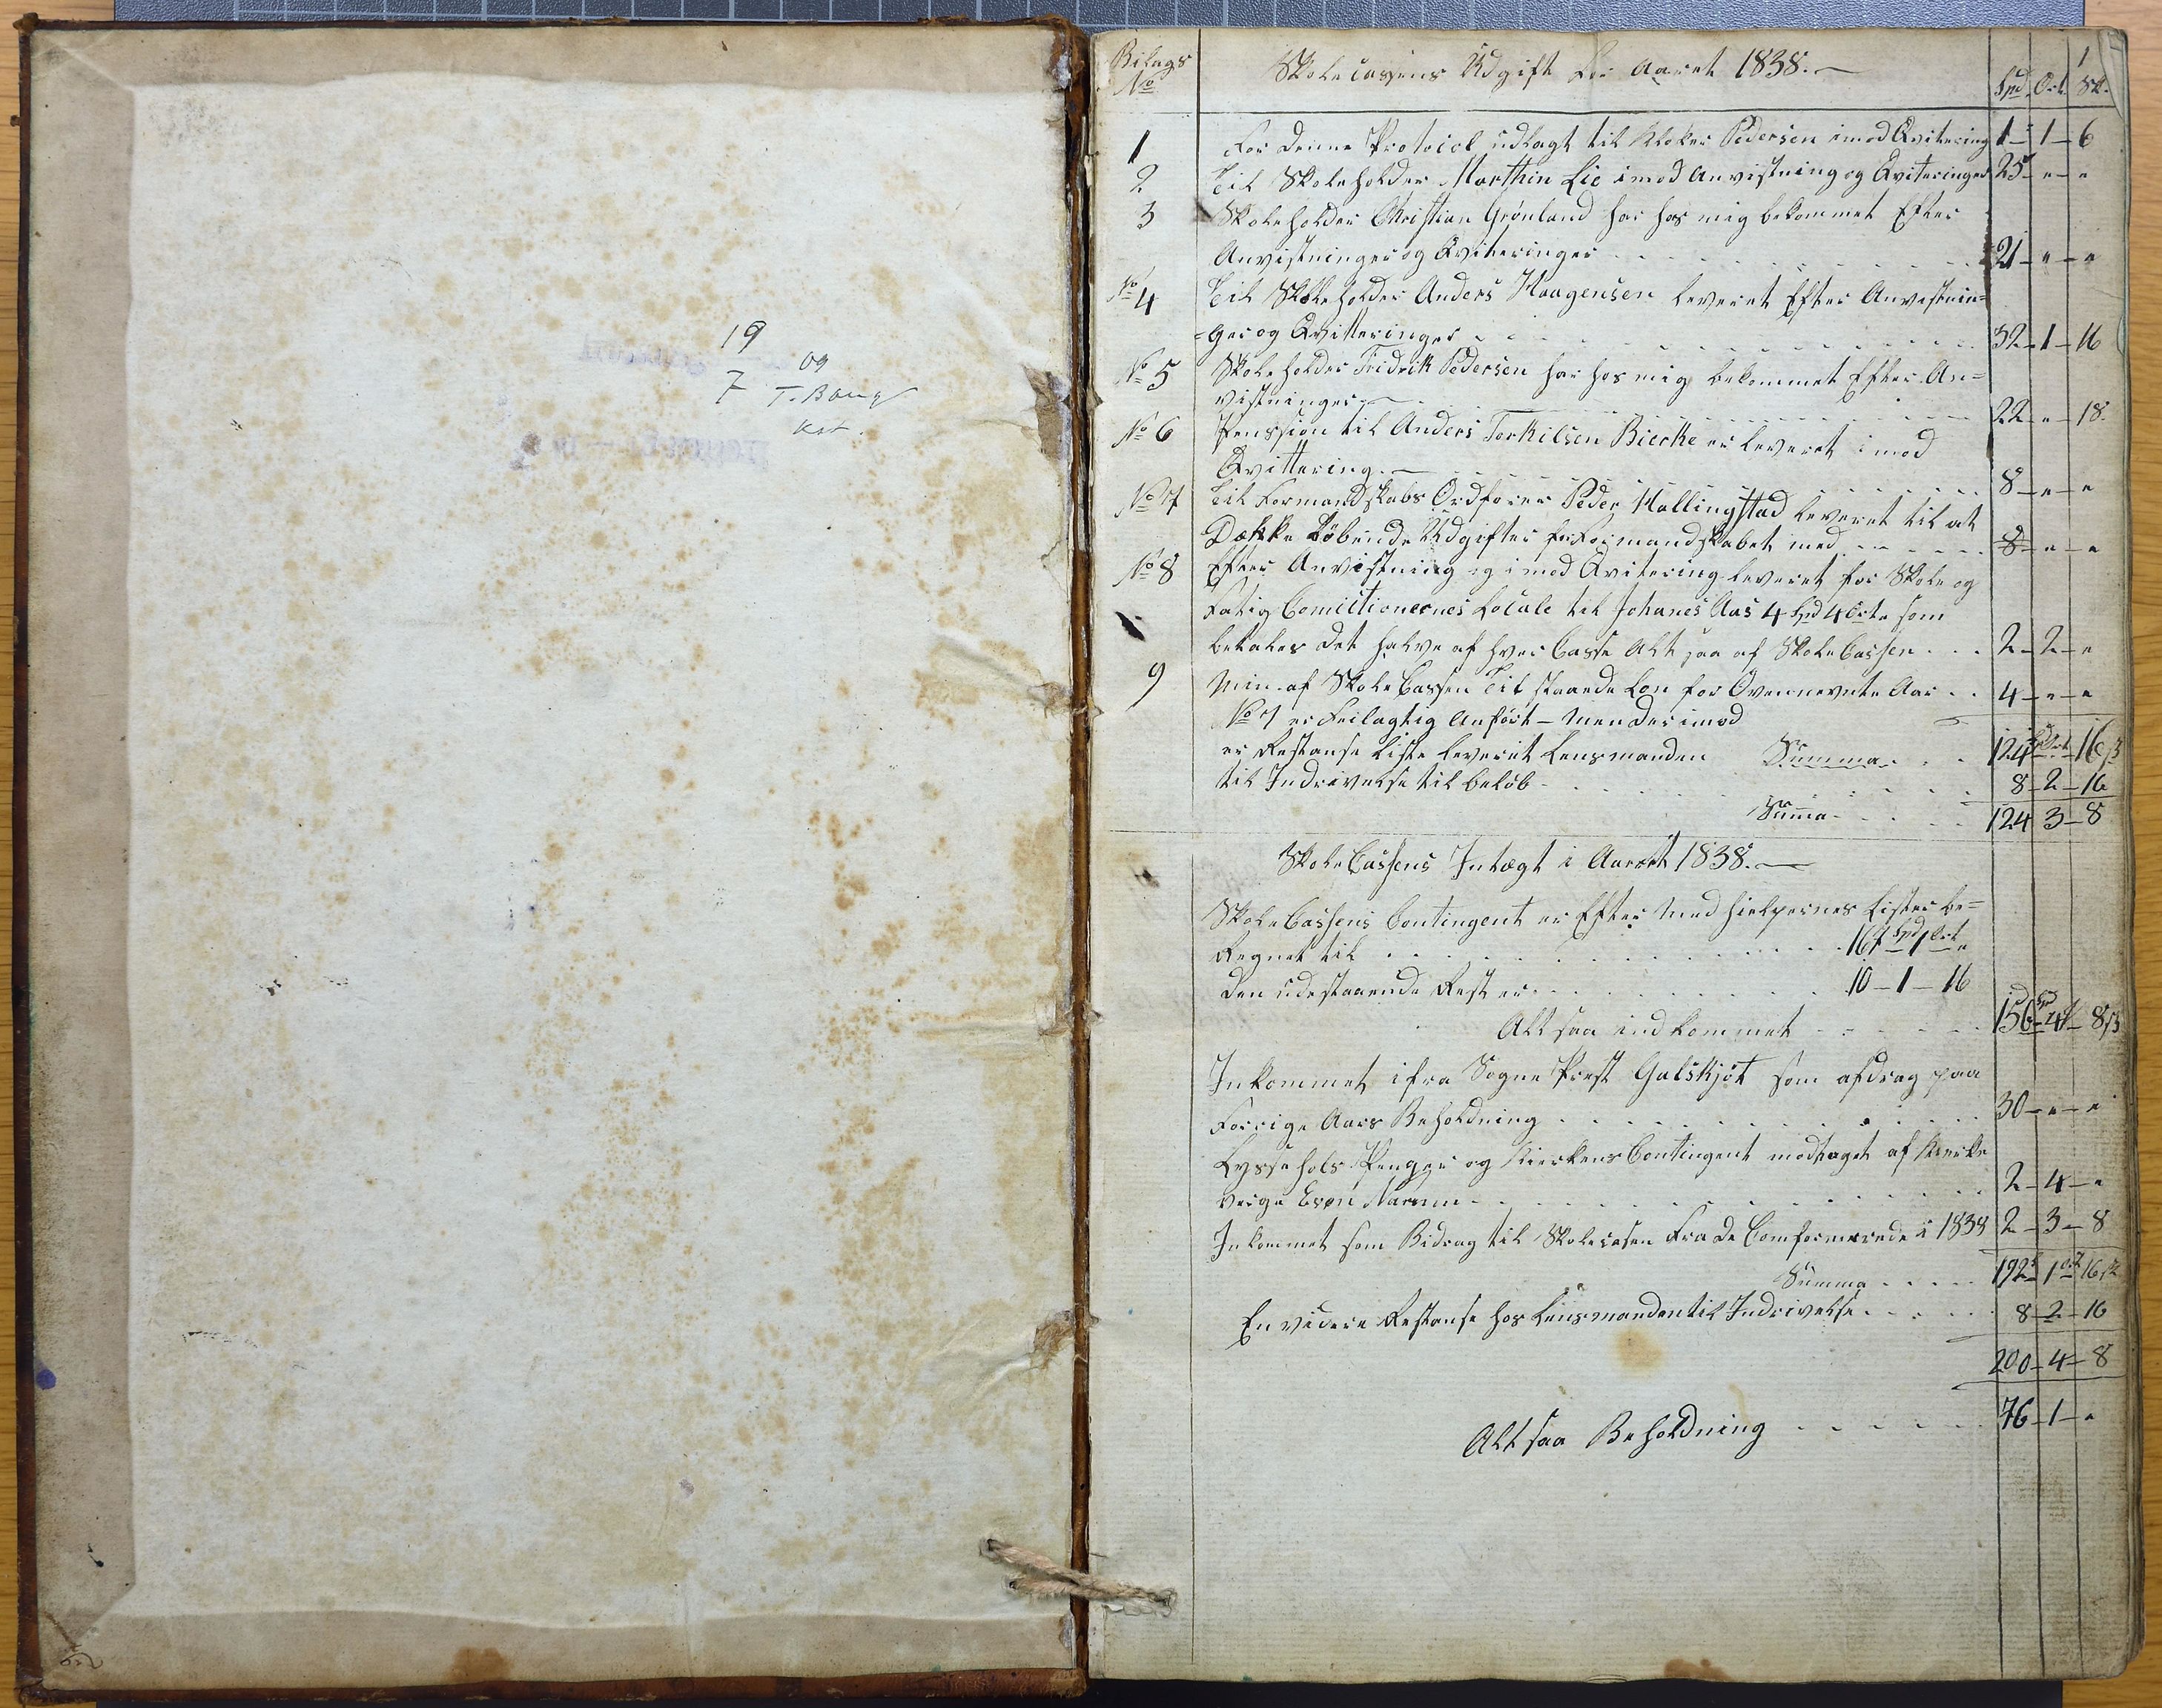 19
7 09
T. Bang
kst.
1
Bilags
No
Skolecassens Udgift for Aaret 1838.
Spd. Ort. Sk.
1 For denne Protocol udlagt til Kloker Pedersen imod Qvitering 1 - 1 - 6
2 Til Skoleholder Marthin Lie imod Anvistning og Qviteringer 25 - " - "
3 Skoleholder Christian Grønland har hos mig bekommet Efter
Anvistninger og Qviteringer 21 - " - "
No 4 Til Skoleholder Anders Haagensen leveret Efter Anvistnin=
=ger og Qvitteringer 32 - 1 - 16
No 5 Skoleholder Fridrik Pedersen har hos mig bekommet Efter An=
vistninger 22 - " - 18.
No 6 Penssion til Anders Torkilsen Bierke er leveret imod
Qvittering. 8 - " - "
No 7 Til Formandskabs Ordfører Peder Hallingstad leveret til at
Dække Løbende Udgifter for Formandskabet med 8 - " - "
No 8 Efter Anvistning og imod Qvitering leveret for Skole og
Fatig Comistionernes Locale til Johanes Aas 4 Spd 4 Orte som
betales det halve af hver Casse Alt saa af Skole Cassen 2 - 2 - "
9 Min af Skole Cassen Til staaede Løn for Ovennevnte Aar 4 - " - "
No 7 er Feilagtig Anført - men derimod
er Restanse Liste leveret Lensmanden Summa 124 16 s
til Indrivelse til beløb 8 - 2 - 16
Summa 124 3 - 8
Skole Cassens Intægt i Aaret 1838.
Skole Cassens Contingent er Efter Med hielpernes Lister be=
Regnet til 167 Spd 1 Ort "
Den udestaaende Rest er 10 - 1 - 16
Alt saa indkommet 156 Spd 4 - 8 s
Inkommet ifra Sogne Prest Gulskjøt som afdrag paa
Forrige Aars Beholdning 30 - " - "
Lysse hols Penger og Kierkens Contingent modtaget af Kierke
verge Even 2 - 4 - "
Inkommet som Bidrag til Skolecasen Fra de Comformerede i 1838 2 - 3 - 8
Summa 192 1 ort 16 sk
En videre Restanse hos Lensmanden til Indrivelse 8 - 2 - 16
200 - 4 - 8
Alt saa Beholdning 76 - 1 - "